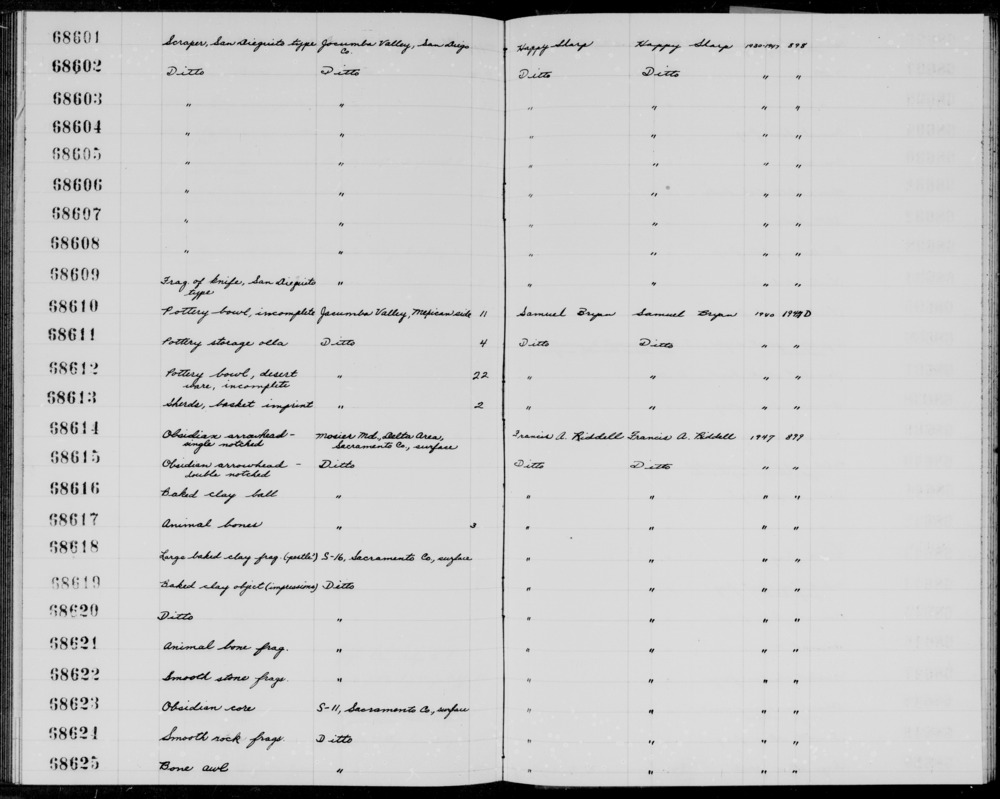 68601 Scraper, San Dieguito type Jacumba Valley, San Diego Co. Happy Sharp Happy Sharp 1930-1947 898
68602 Ditto Ditto Ditto Ditto " "
68603 " " " " " "
68604 " " " " " "
68605 " " " " " "
68606 " " " " " "
68607 " " " " " "
68608 " " " " " "
68609 Frag. of knife, San Dieguito type " " " " "
68610 Pottery bowl, incomplete Jacumba Valley, Mexican side 11 Samuel Bryan Samuel Bryan 1940 1949D
68611 Pottery storage olla Ditto 4 Ditto Ditto " "
68612 Pottery bowl, desert ware, incomplete " 22 " " " "
68613 Sherds, basket imprint " 2 " " " "
68614 Obsidian arrowhead - single notched Mosier Md., Delta Area, Sacramento Co., surface Francis A. Riddell Francis A. Riddell 1947 899
68615 Obsidian arrowhead - double notched Ditto Ditto Ditto " "
68616 Baked clay ball " " " " "
68617 Animal bones " 3 " " " "
68618 Large baked clay frag. (pestle?) S-16, Sacramento Co., surface " " " "
68619 Baked clay object (impressions) Ditto " " " "
68620 Ditto " " " " "
68621 Animal bone frag. " " " " "
68622 Smooth stone frags. " " " " "
68623 Obsidian core S-11, Sacramento Co., surface " " " "
68624 Smooth rock frags. Ditto " " " "
68625 Bone awl " " " " "